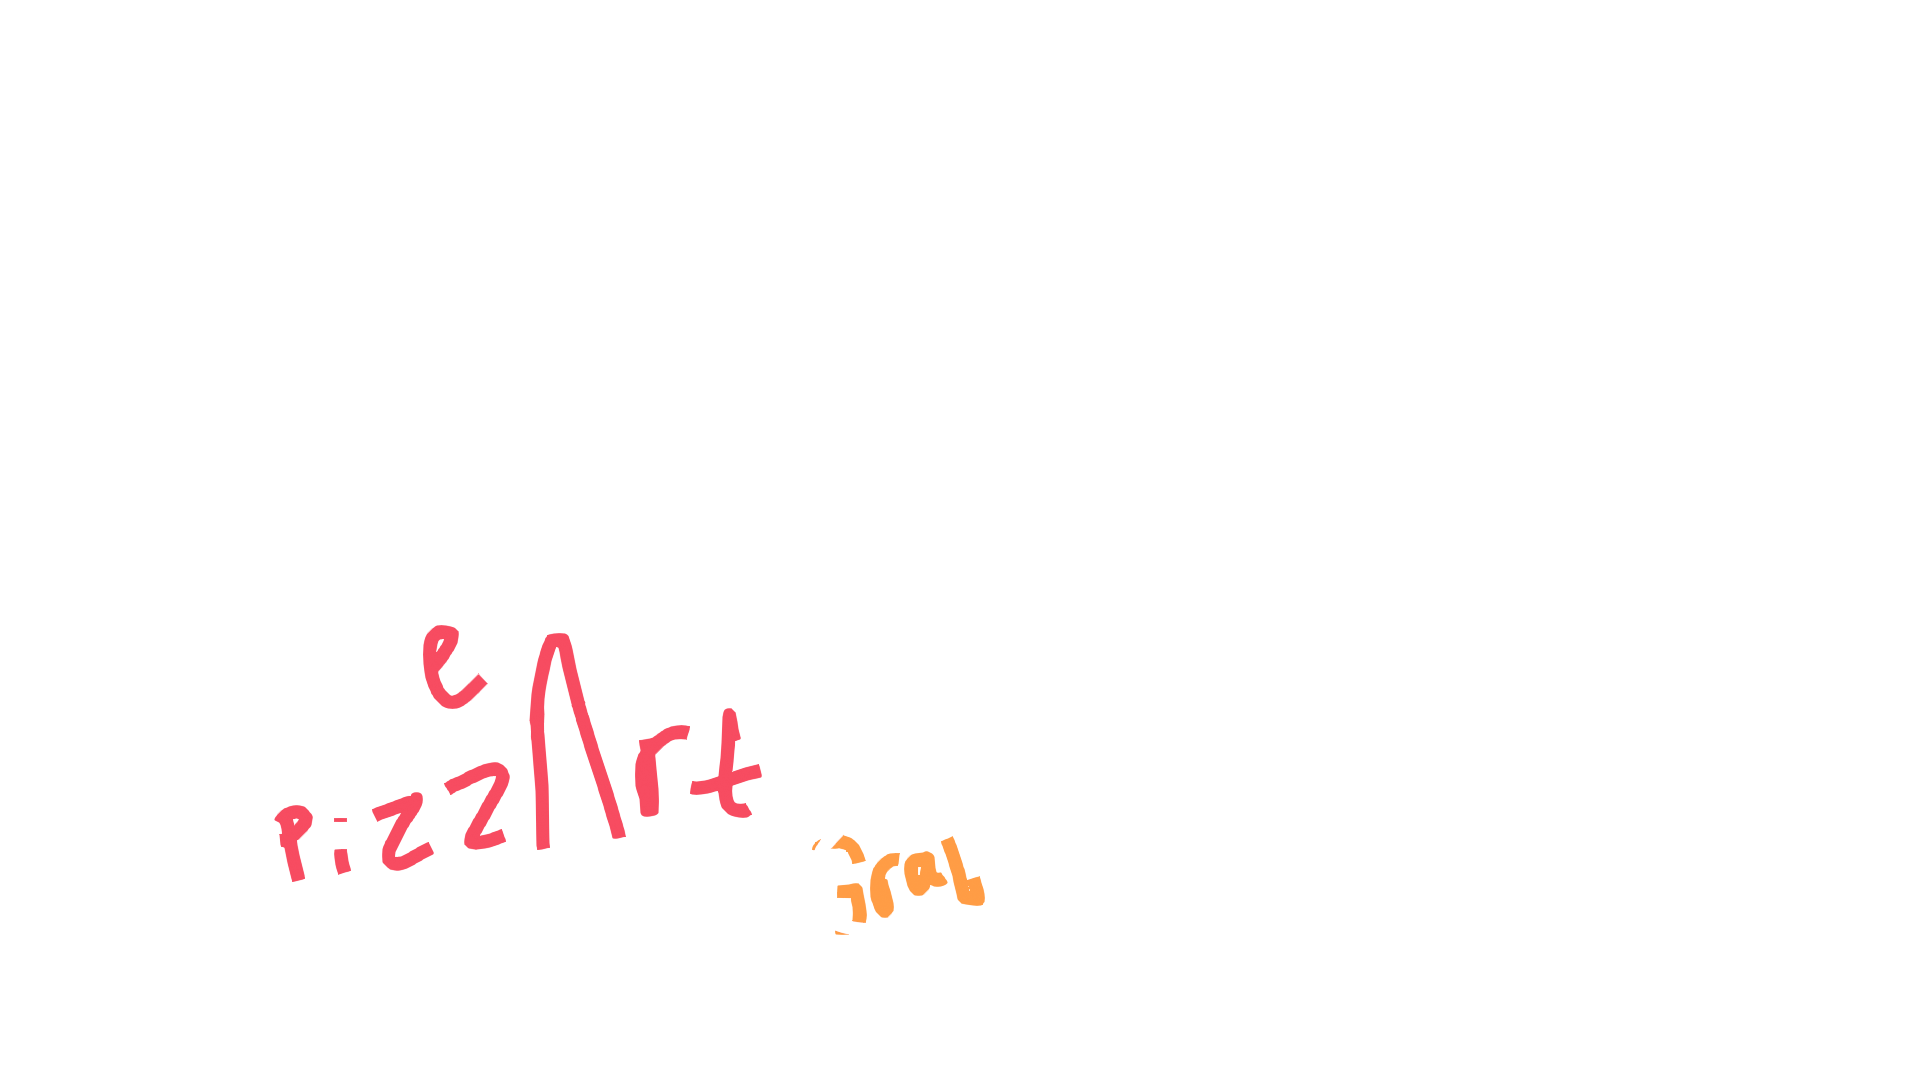 e
PizzΛrt
Gral